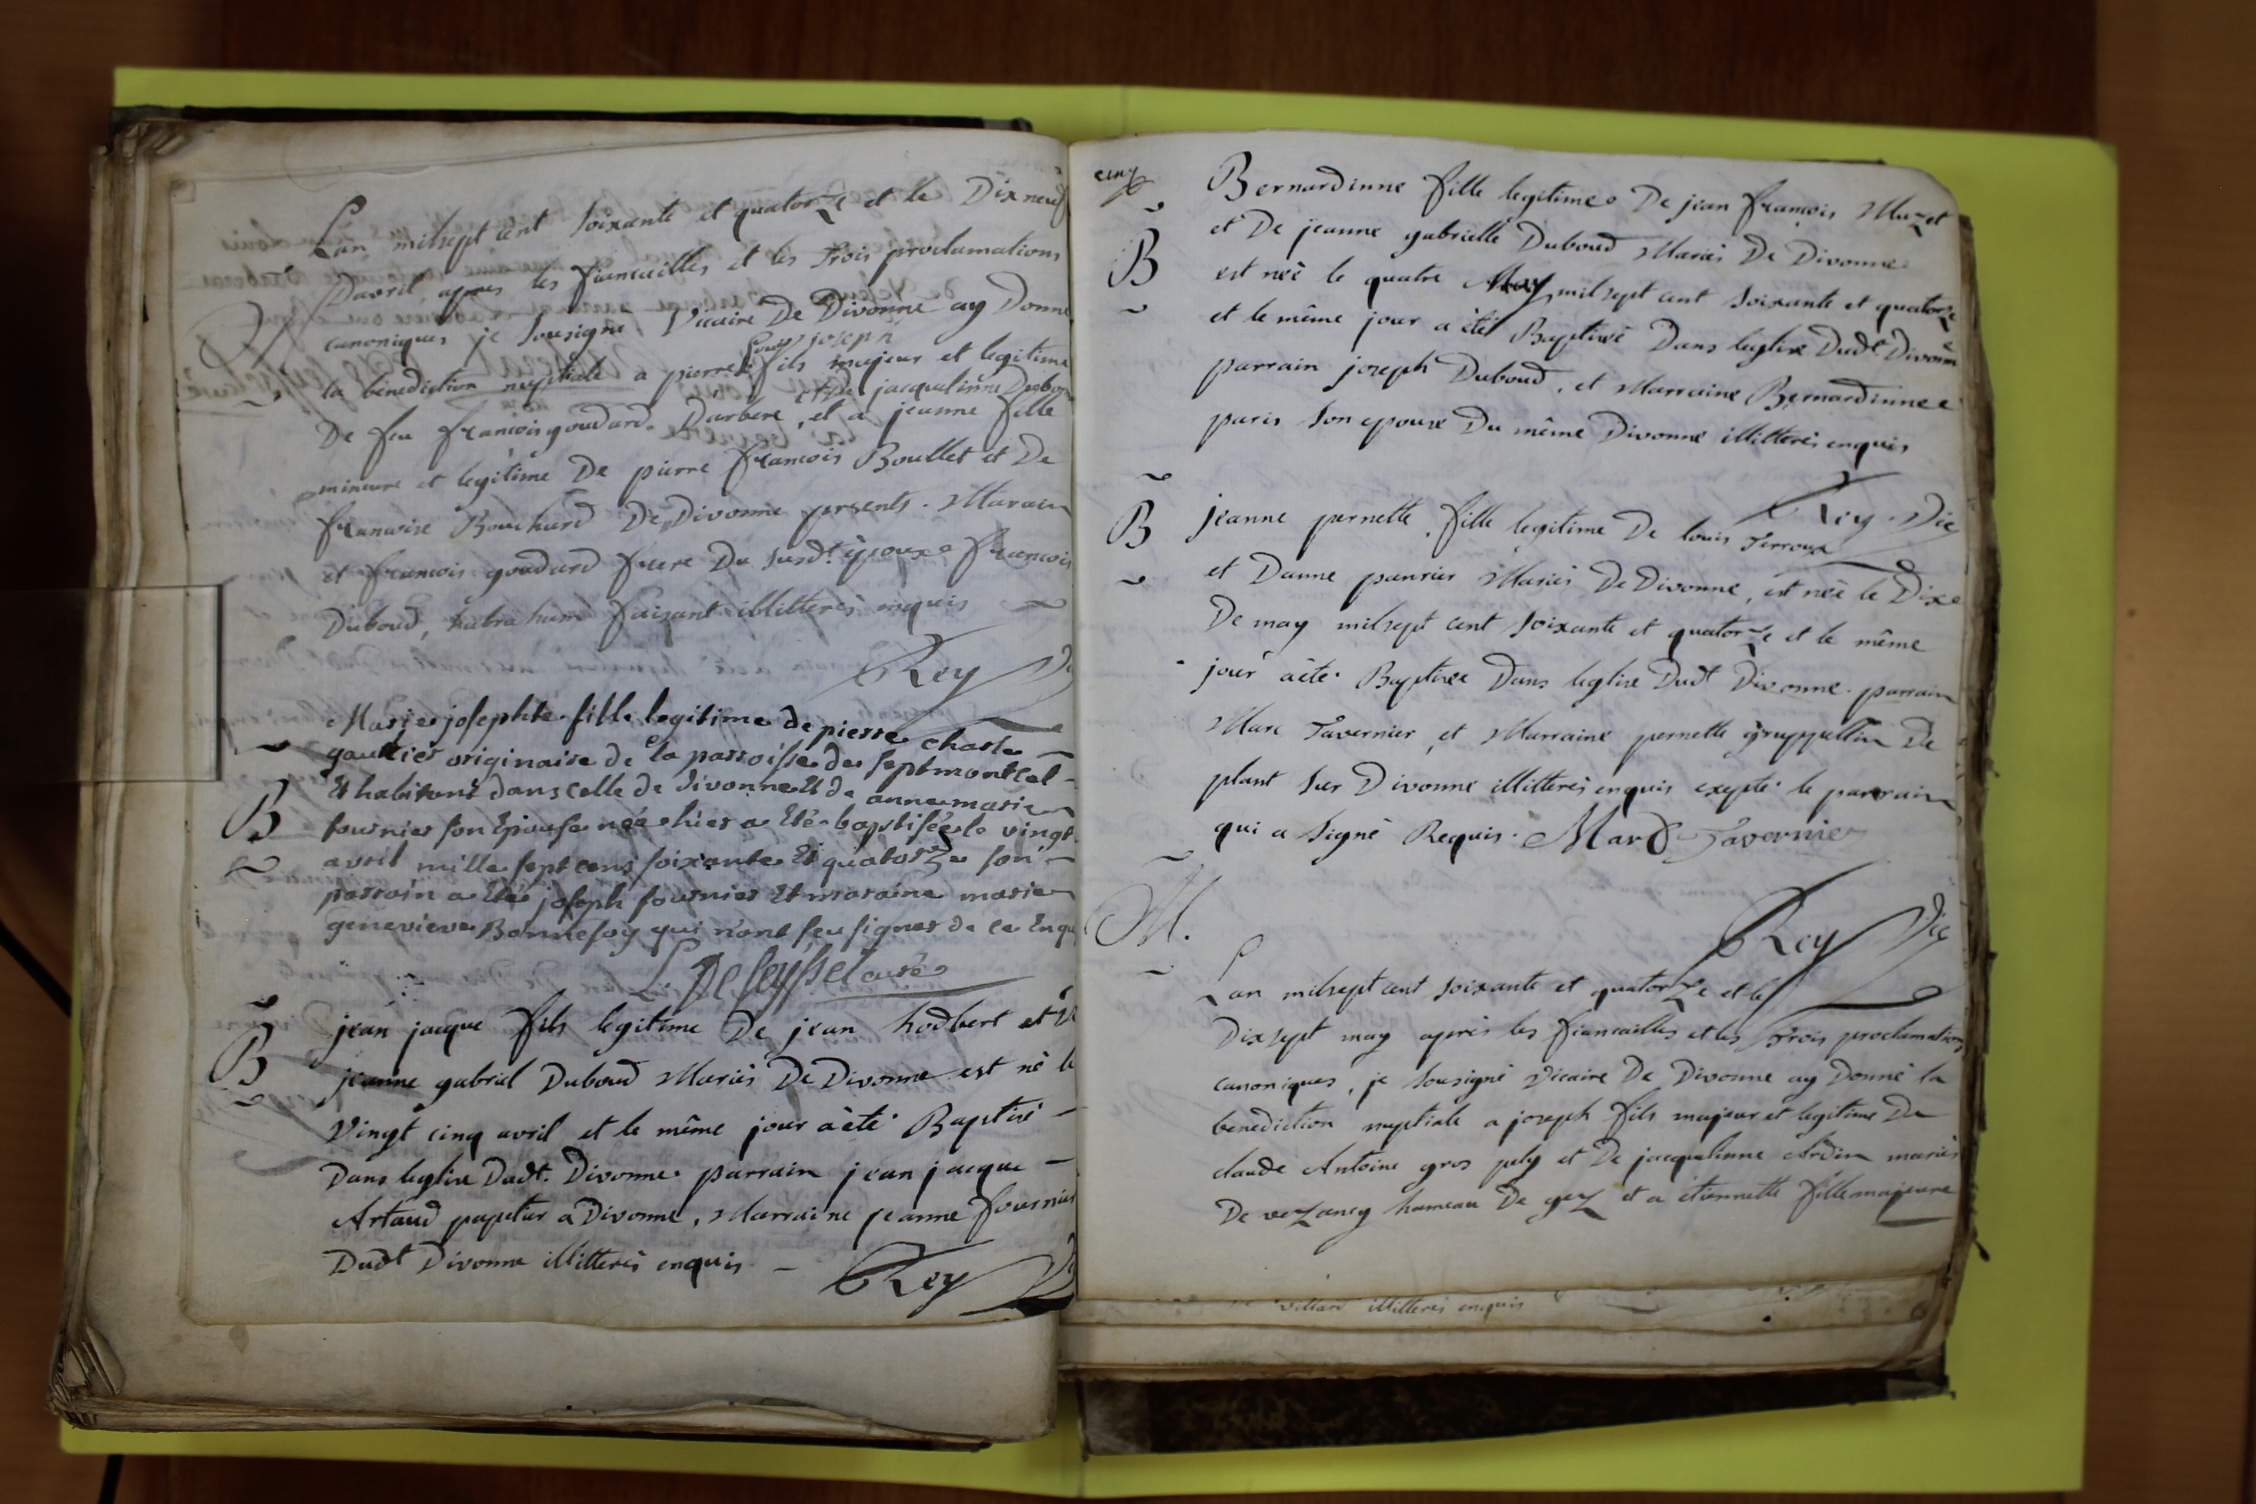 Lan milsept cent soixante et quatorze et le Dixneuf
Davril, apres les fiancailles et les trois proclamations
canoniques je sousigné Vicaire De Divonne ay Donné
Louis joseph
la benediction nuptiale a pierre fils majeur et legitime
et De jacqueline Dubou
De feu francois goudard Darbere, et a jeanne fille
mineure et legitime De pierre francois Boullet et De
francoise Bouchard De Divonne presents. Marain
et francois goudard frere Du susdt. Epoux francois
Duboud, faisant illitterés enquis
Rey
B
Marie josephte fille legitime de pierre charle
gautier originaire de la parroisse de septmontcel
Et habitant dans celle de divonne Et de anne marie
fournier son Epouse née hier a Eté baptisée le vingt
avril mille sept cens soixante Et quatorze son
parrain a Eté joseph fournier Et maraine marie
genevieve Bonnefoy qui n'ont seu signer de ce Enqu
L. De seyssel curé
B
jean jacque fils legitime De jean hodbert et
jeanne gabriel Duboud Mariés De Divonne est né le
Vingt cinq avril et le même jour a été Baptisé
Dans leglise Dudt. Divonne parrain jean jacque
Artaud papetier a Divonne, Marraine jeanne fournier
Dudt Divonne illitterés enquis
Rey
cinq
B
Bernardinne fille legitime De jean francois Muzet
et De jeanne gabrielle Duboud Mariés De Divonne
est neé le quatre May milsept cent soixante et quatorze
et le même jour a été Baptisé Dans leglise Dudt Divonne
parrain joseph Duboud, et Marraine Bernardinne
paris son epouse Du même Divonne illitterés enquis
Rey Vic
B
jeanne pernette, fille legitime De louis Terroux
et Danne panrier Mariés De Divonne, est neé le Dix
De may milsept cent soixante et quatorze et le même
jour a été Baptisée Dans leglise Dudt Divonne parrain
Marc Tavernier et Marraine pernette De
plant sur Divonne illitterés enquis exepté le parrain
qui a signé Requis. Marc Tavernier
Rey Vic
M.
Lan milsept cent soixante et quatorze et le
Dixsept may aprés les fiancailles et les trois proclamations
canoniques, je sousigné Vicaire De Divonne ay Donné la
benediction nuptiale a joseph fils majeur et legitime De
claude Antoine gros pely et De jacquelinne Ardin mariés
De vezancy hameau De gez et a etiennette fille majeure
Villard illitterés enquis